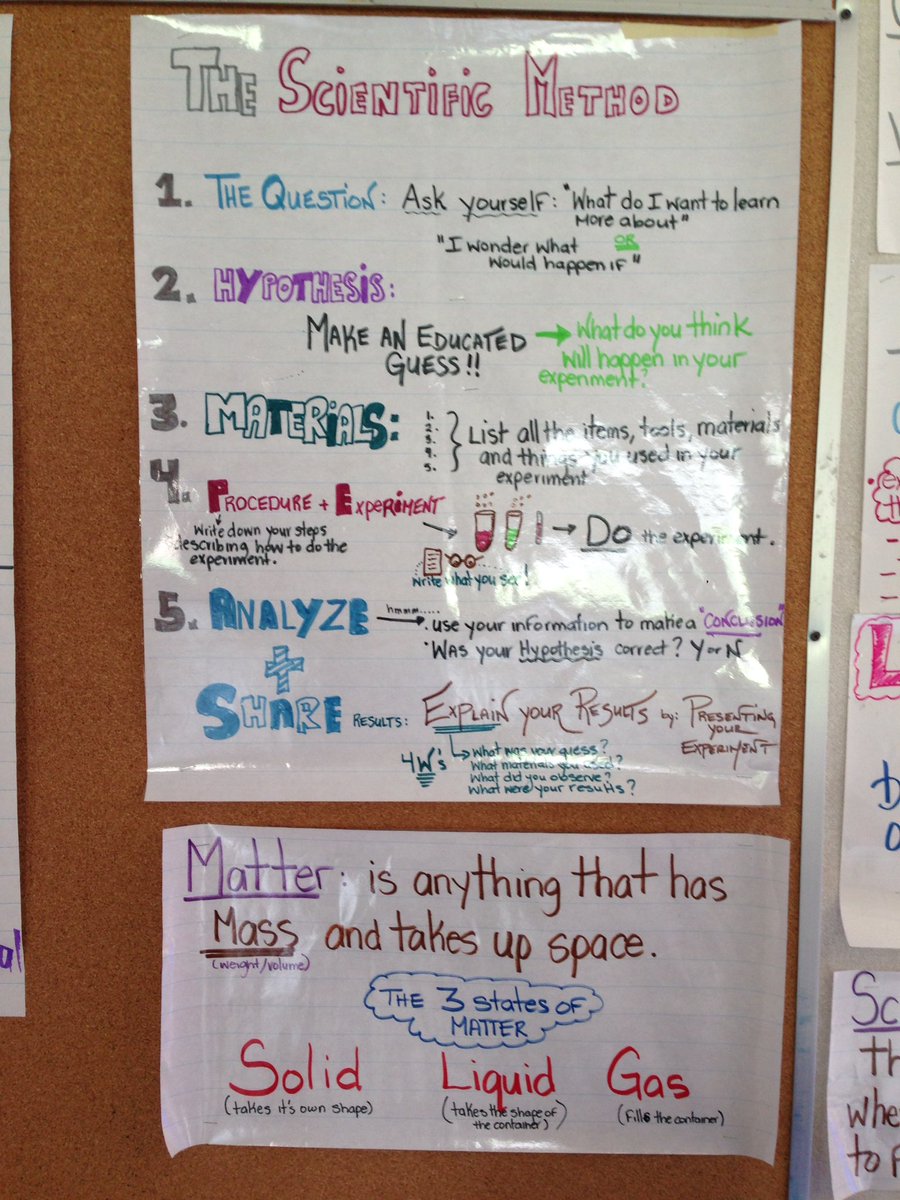 THE SCIENTIFIC METHOD
1. THE QUESTION: Ask yourself: "What do I want to learn
more about"
OR
"I wonder what
would happen if"
2. HYPOTHESIS:
MAKE AN EDUCATED
GUESS!!
→ What do you think
will happen in your
experiment?
3. MATERIALS:
1.
2.
3.
4.
5.
List all the items, tools, materials
and things you used in your
experiment
4. PROCEDURE + EXPERIMENT
Write down your steps
describing how to do the
experiment.
→ Do the experiment.
Write what you see!
5. ANALYZE
+
SHARE
hmmm.....
. use your information to make a "CONCLUSION"
• Was your Hypothesis correct? Y or N
RESULTS: EXPLAIN YOUR RESULTS by: PRESENTING
YOUR
EXPERIMENT
4W's
What was your guess?
What materials you used?
What did you observe?
What were your results?
Matter: is anything that has
Mass and takes up space.
(weight/volume)
THE 3 states of
MATTER
Solid
(takes it's own shape)
Liquid
(takes the shape of
the container)
Gas
(fills the container)
al
Sc
Th
whe
to